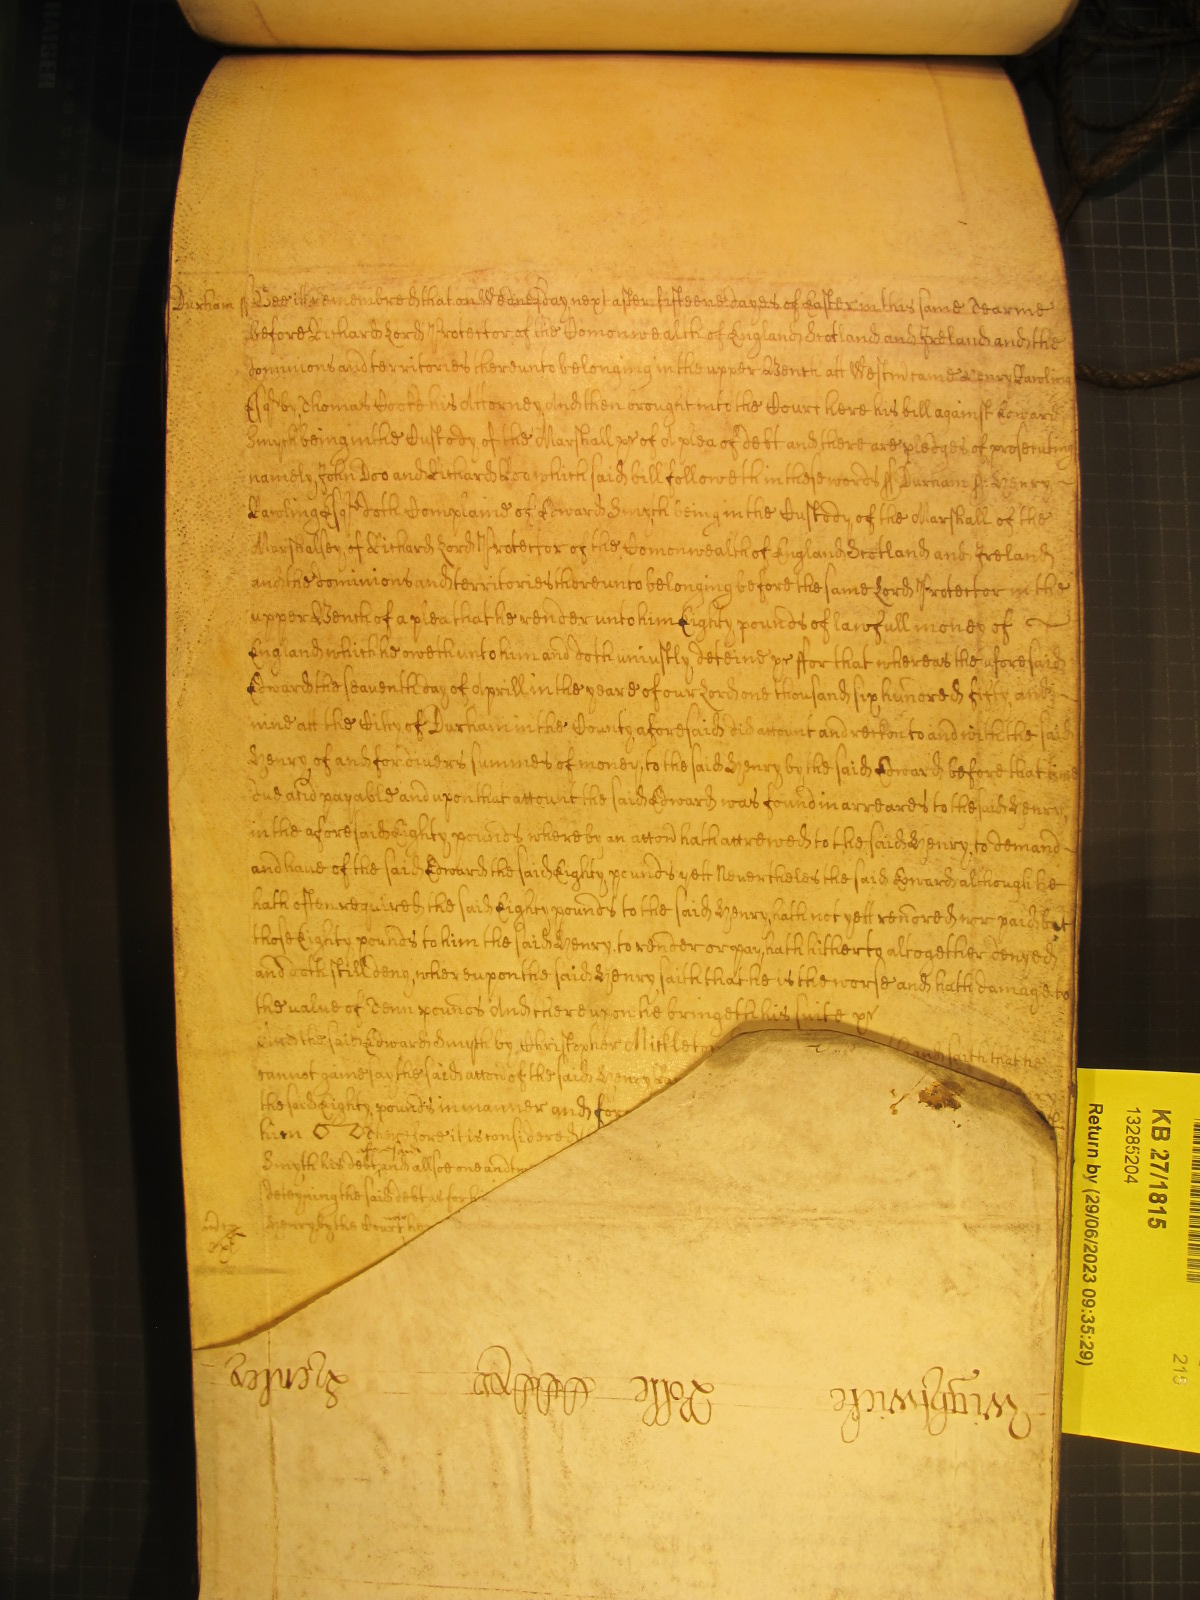 Durham ss Bee it remembred that on Wednesday next after fifteene dayes of Easter in this same Tearme
before Richard Lord Protector of the Comonwealth of England Scotland and Ireland and the
dominions and territories thereunto belonging in the upper Bench att Westm came Henry Rawling
Esqr by Thomas Cooke his Attorney And then brought into the Court here his bill against Edward
Smyth being in the Custody of the Marshall &c of a plea of Debt and there are pledges of prosecuting
namely John Doo and Richard Roo which said bill followeth in these words ss Durham ss Henry
Rawling Esqr doth Complaine of Edward Smyth being in the Custody of the Marshall of the
Marshalsey of Richard Lord Protector of the Comonwealth of England Scotland and Ireland
and the dominions and territories thereunto belonging before the same Lord Protector in the
upper Bench of a plea that he render unto him Eighty pounds of lawfull money of
England which he oweth unto him and doth uniustly deteine &c ffor that whereas the aforesaid
Edward the seaventh day of Aprill in the yeare of our Lord one thousand six hundred fifty and
nine att the Citty of Durham in the County aforesaid did accompt and reckon to and with the said
Henry of and for divers summes of money to the said Henry by the said Edward before that time
due and payable and upon that accompt the said Edward was found in arreares to the said Henry
in the aforesaid Eighty pounds whereby an accon hath accrewed to the said Henry to demand
and have of the said Edward the said Eighty pounds yett Nevertheles the said Edward although he
hath often required the said Eighty pounds to the said Henry hath not yett rendred nor paid but
those Eighty pounds to him the said Henry to render or pay hath hitherto altogether denyed
and doth still deny whereupon the said Henry saith that he is the worse and hath damage to
the value of Tenn pounds And thereupon he bringeth his suite &c
And the said Edward Smyth by Christopher Mickleton and saith that he
cannot gainesay the said accon of the said Henry
the said Eighty pounds in manner and for
him Therefore it is considered
Smyth his debt and allsoe one and
deteyning the said debt as for
Henry by the Court
Wightwicke Rolle Henley
KB 27/1815
13285204
Return by (29/06/2023 09:35:29)
215